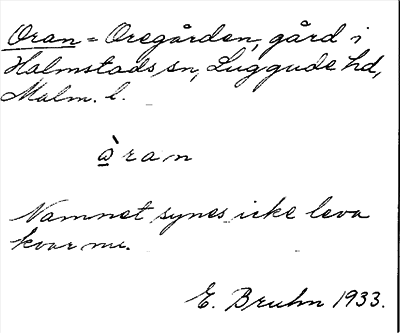 Oran = Oregården, gård i
Halmstads sn, Luggude hd,
Malm. l.
òran
Namnet synes icke leva
kvar nu.
E. Bruhn 1933.